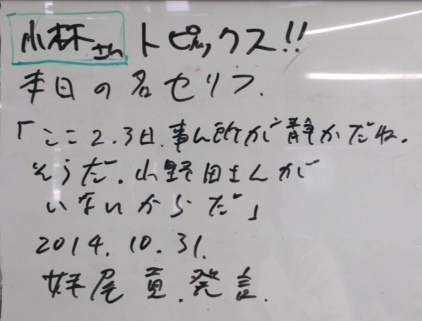 小林さんトピックス!!
本日の名セリフ.
「ここ2.3日.事ム所が静かだね。
そうだ.小野田さんが
いないからだ」
2014.10.31.
妹尾 発言.